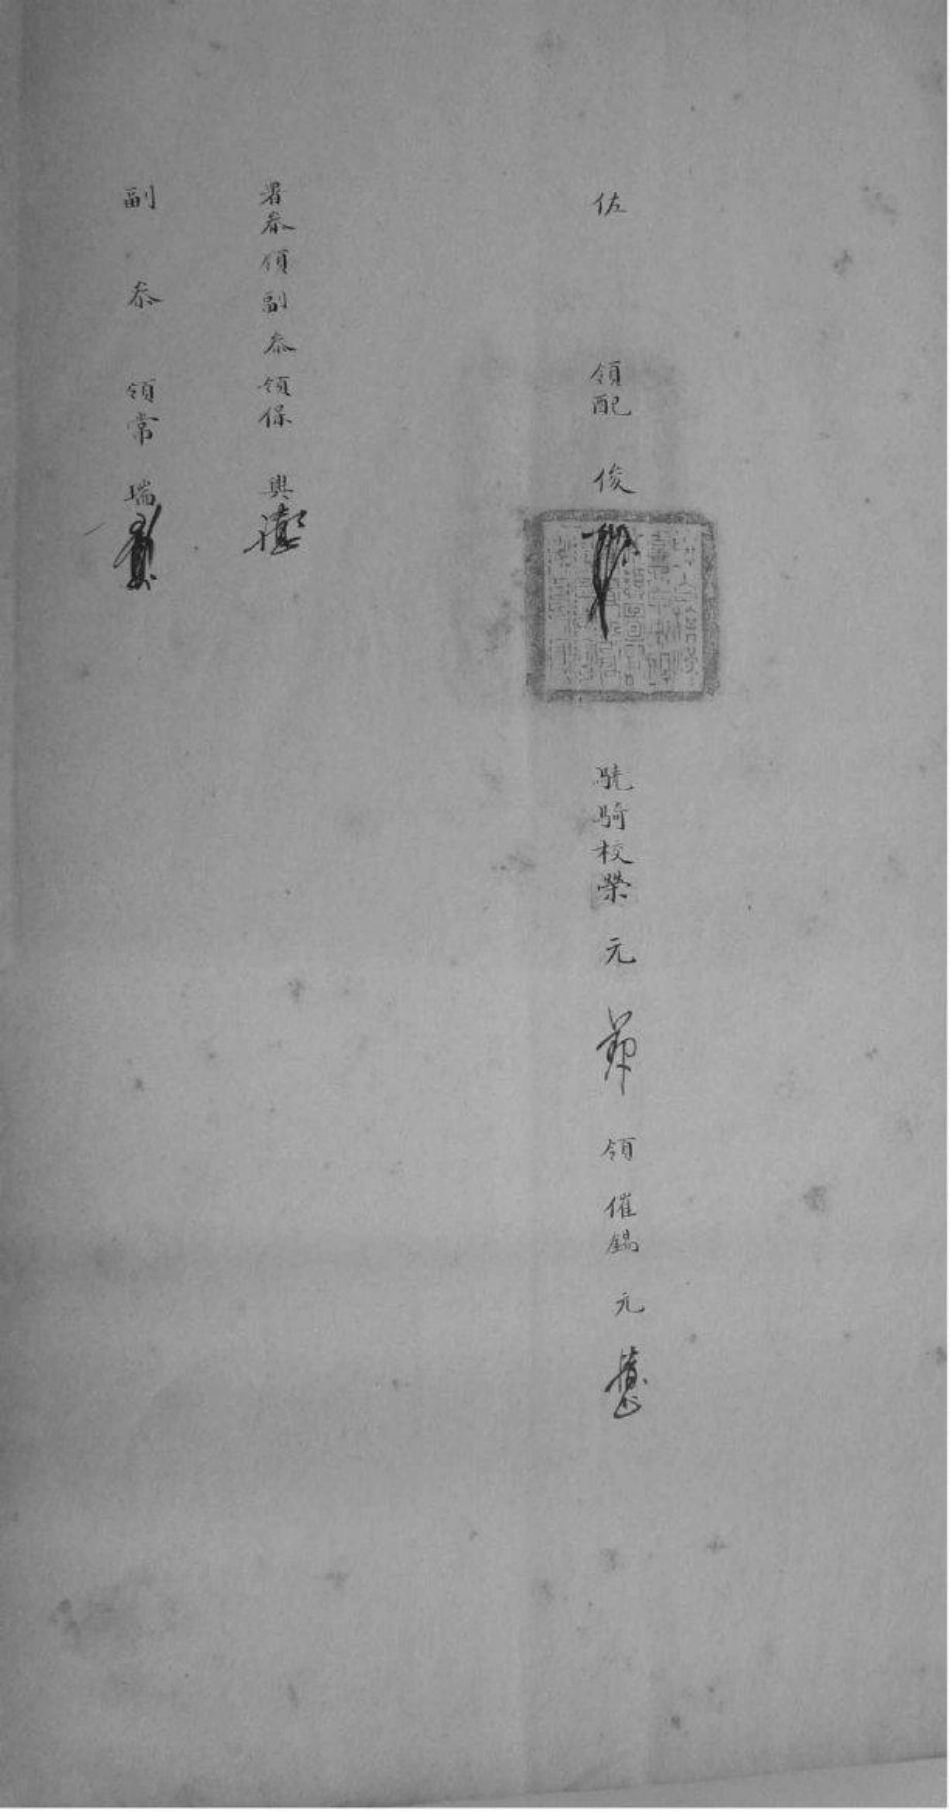 佐領配俊 驍騎校榮元 領催錫元
署叅領副叅領保興
副叅領常瑞